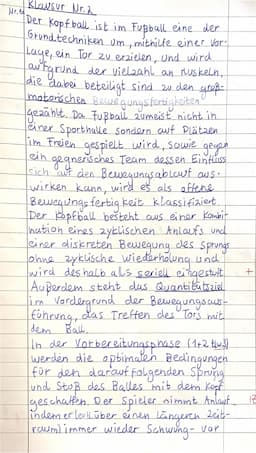 Klausur Nr. 2
Nr. 1a
Der Kopfball ist im Fußball eine der
Grundtechniken um, mithilfe einer Vor-
lage, ein Tor zu erzielen, und wird
aufgrund der vielzahl an Muskeln,
die dabei beteiligt sind zu den groß-
motorischen Bewegungsfertigkeiten
gezählt. Da Fußball zumeist nicht in
einer Sporthalle sondern auf Plätzen
im Freien gespielt wird, sowie gegen
ein gegnerisches Team dessen Einfluss
sich auf den Bewegungsablauf aus-
wirken kann, wird es als offene
Bewegungsfertigkeit klassifiziert.
Der Kopfball besteht aus einer Kombi-
nation eines zyklischen Anlaufs und
einer diskreten Bewegung des Sprungs
ohne zyklische Wiederholung und
wird deshalb als seriell eingestuft. +
Außerdem steht das Quantitätsziel
im Vordergrund der Bewegungsaus-
führung, das Treffen des Tors mit
dem Ball.
In der Vorbereitungsphase (1+2)
werden die optimalen Bedingungen
für den darauf folgenden Sprung
und Stoß des Balles mit dem Kopf
geschaffen. Der Spieler nimmt Anlauf
indem er über einen längeren Zeit-
raum immer wieder Schwung- vor